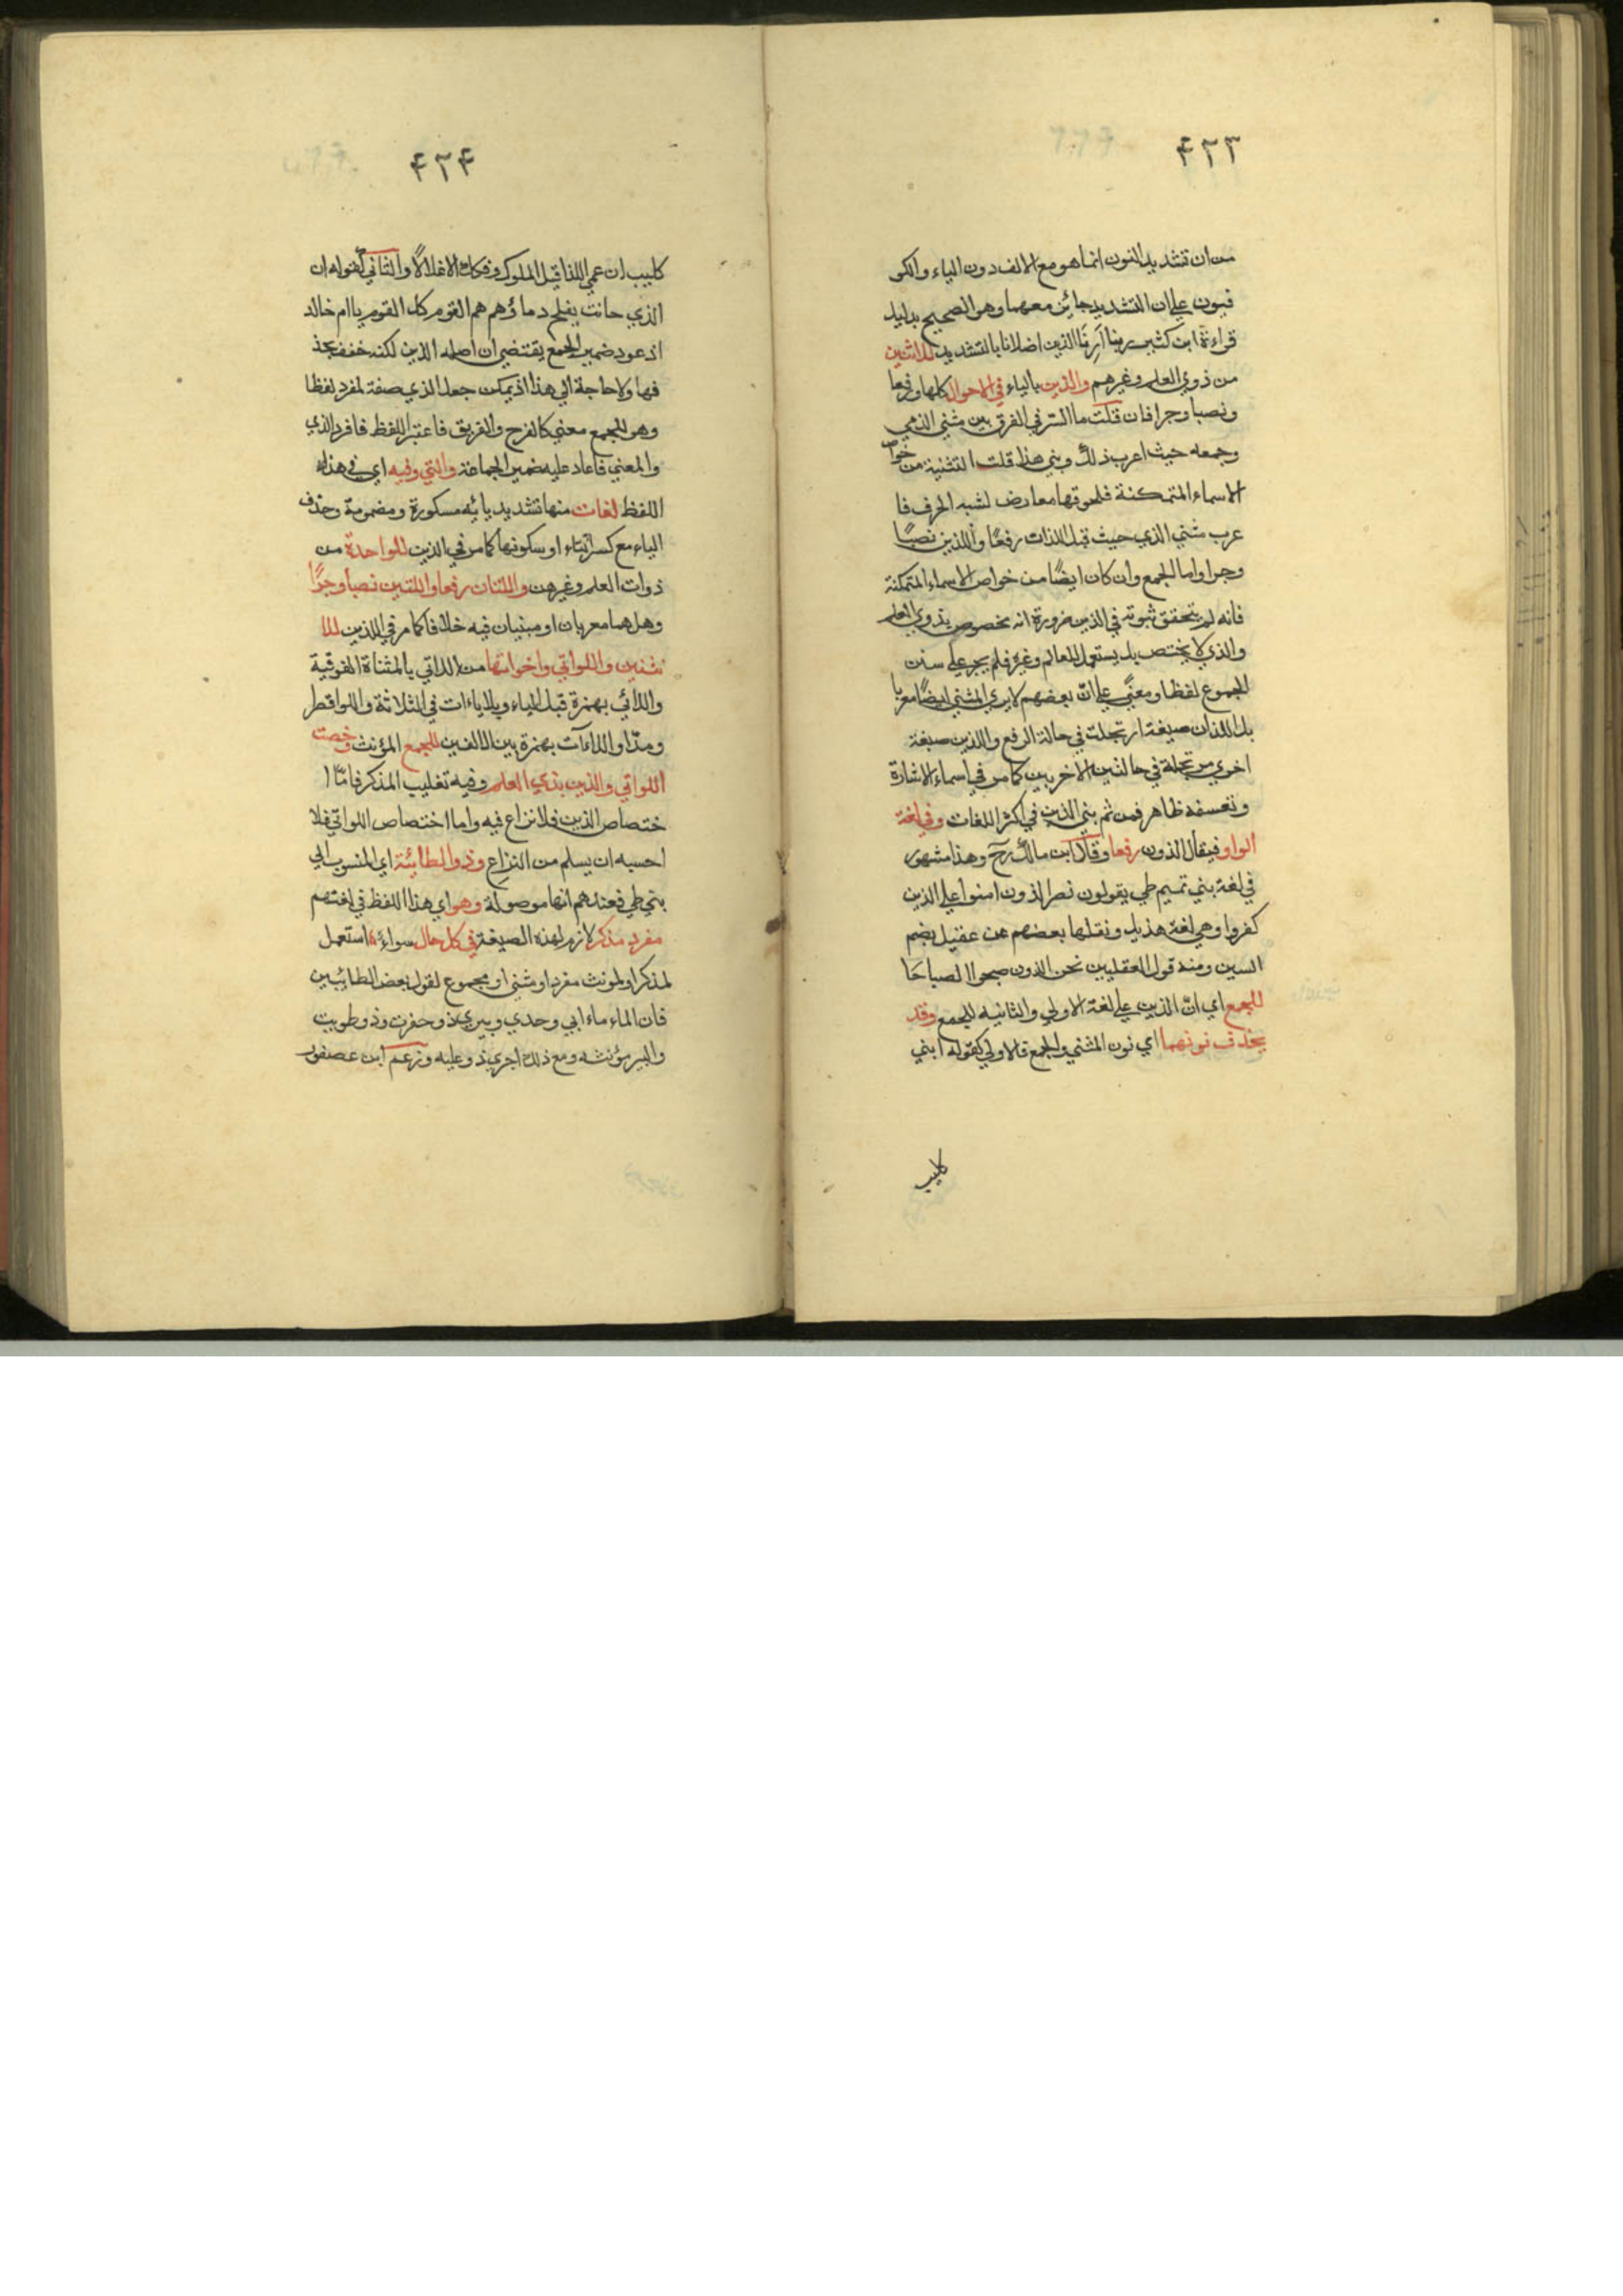 ٤٢٣
من ان تشديد النون انما هو مع الالف دون الياء والكو
فيون علي ان التشديد جائز معهما وهو الصحيح بدليل
قراءة ابن كثير ربنا ارنا الذين اضلانا بالتشديد للاثنين
من ذوي العلم وغيرهم والذين بالياء في الاحوال كلها رفعا
ونصبا وجرا فان قلت ما السر في الفرق بين مثني الذي
وجمعه حيث اعرب ذلك وبني هذا قلت التثنية من خوا
الاسماء المتمكنة فلحوقها معارض لشبه الحرف فا
عرب مثني الذي حيث قيل اللذان رفعًا واللذين نصبًا
وجرا واما الجمع وان كان ايضًا من خواص الاسماء المتمكنة
فانه لم يتحقق ثبوته في الذين ضرورة انه مخصوص بذوي العلم
والذي لا يختص بل يستعمل للعالم وغيره فلم يجر علي سنن
الجموع لفظا ومعنًي علي انّ بعضهم لا يري المثني ايضًا معربا
بل اللذان صيغة ارتجلت في حالة الرفع واللذين صيغة
اخري مرتجلة في حالتين الاخريين كما مر في اسماء الاشارة
وتعسفه ظاهر فمن ثم بني الذين في اكثر اللغات وفي لغة
الواو فيقال الذون رفعا وقال ابن مالك رح وهذا مشهور
في لغة بني تميم طي يقولون نصر الذون امنوا علي الذين
كفروا وهي لغة هذيل ونقلها بعضهم عن عقيل بضم
السين ومنه قول العقليين نحن الذون صبحوا الصباحَا
للجمع اي انّ الذين علي لغة الاولي والثانيه للجمع وقد
يحذف نونهما اي نون المثني والجمع فالاولي كقوله ابني
كليب
٤٢٤
كليب ان عمي اللذا قيل الملوك وفككا الاغلالا والثاني كقوله ان
الذي حانت بفلج دماؤهم هم القوم كل القوم يا ام خالد
اذ عود ضمير الجمع يقتضي ان اصله الذين لكنه خفف بحذ
فها ولا حاجة الي هذا اذ يمكن جعل الذي صفة لمفرد لفظا
وهو الجمع معني كالفرح والفريق فاعتبر اللفظ فافرد الذي
والمعني فاعاد عليه ضمير الجماعة والتي وفيه اي في هذا
اللفظ لغات منها تشديد يائه مسكورة ومضمومة وحذف
الياء مع كسر التاء او سكونها كما مر في الذين للواحدة من
ذوات العلم وغيرهن واللتان رفعا واللتين نصبا وجرًّا
وهل هما معربان او مبنيان فيه خلافا كما مر في اللذين للا
ثنين واللواتي واخواتها من اللاتي بالمثناة الفوقية
واللائي بهمزة قبل الياء وبلا ياءات في الثلاثة واللوا قصر
ومدّا واللاءات بهمزة بين الالفين للجمع المؤنث وخصت
اللواتي والذين بذي العلم وفيه تغليب المذكر فامّا ا
ختصاص الذين فلا نزاع فيه واما اختصاص اللواتي فلا
احسبه ان يسلم من النزاع وذو الطائية اي المنسوب الي
بني طي فعندهم انها موصولة وهو اي هذا اللفظ في لغتهم
مفرد مذكر لازم لهذه الصيغة في كل حال سواء استعمل
لمذكر او لمونث مفرد او مثني او مجموع لقول بعض الطائيين
فان الماء ماء ابي وحدي وبيري ذو حفرت وذو طويت
والبير مؤنثه ومع ذلك اجري ذو عليه وزعم ابن عصفور